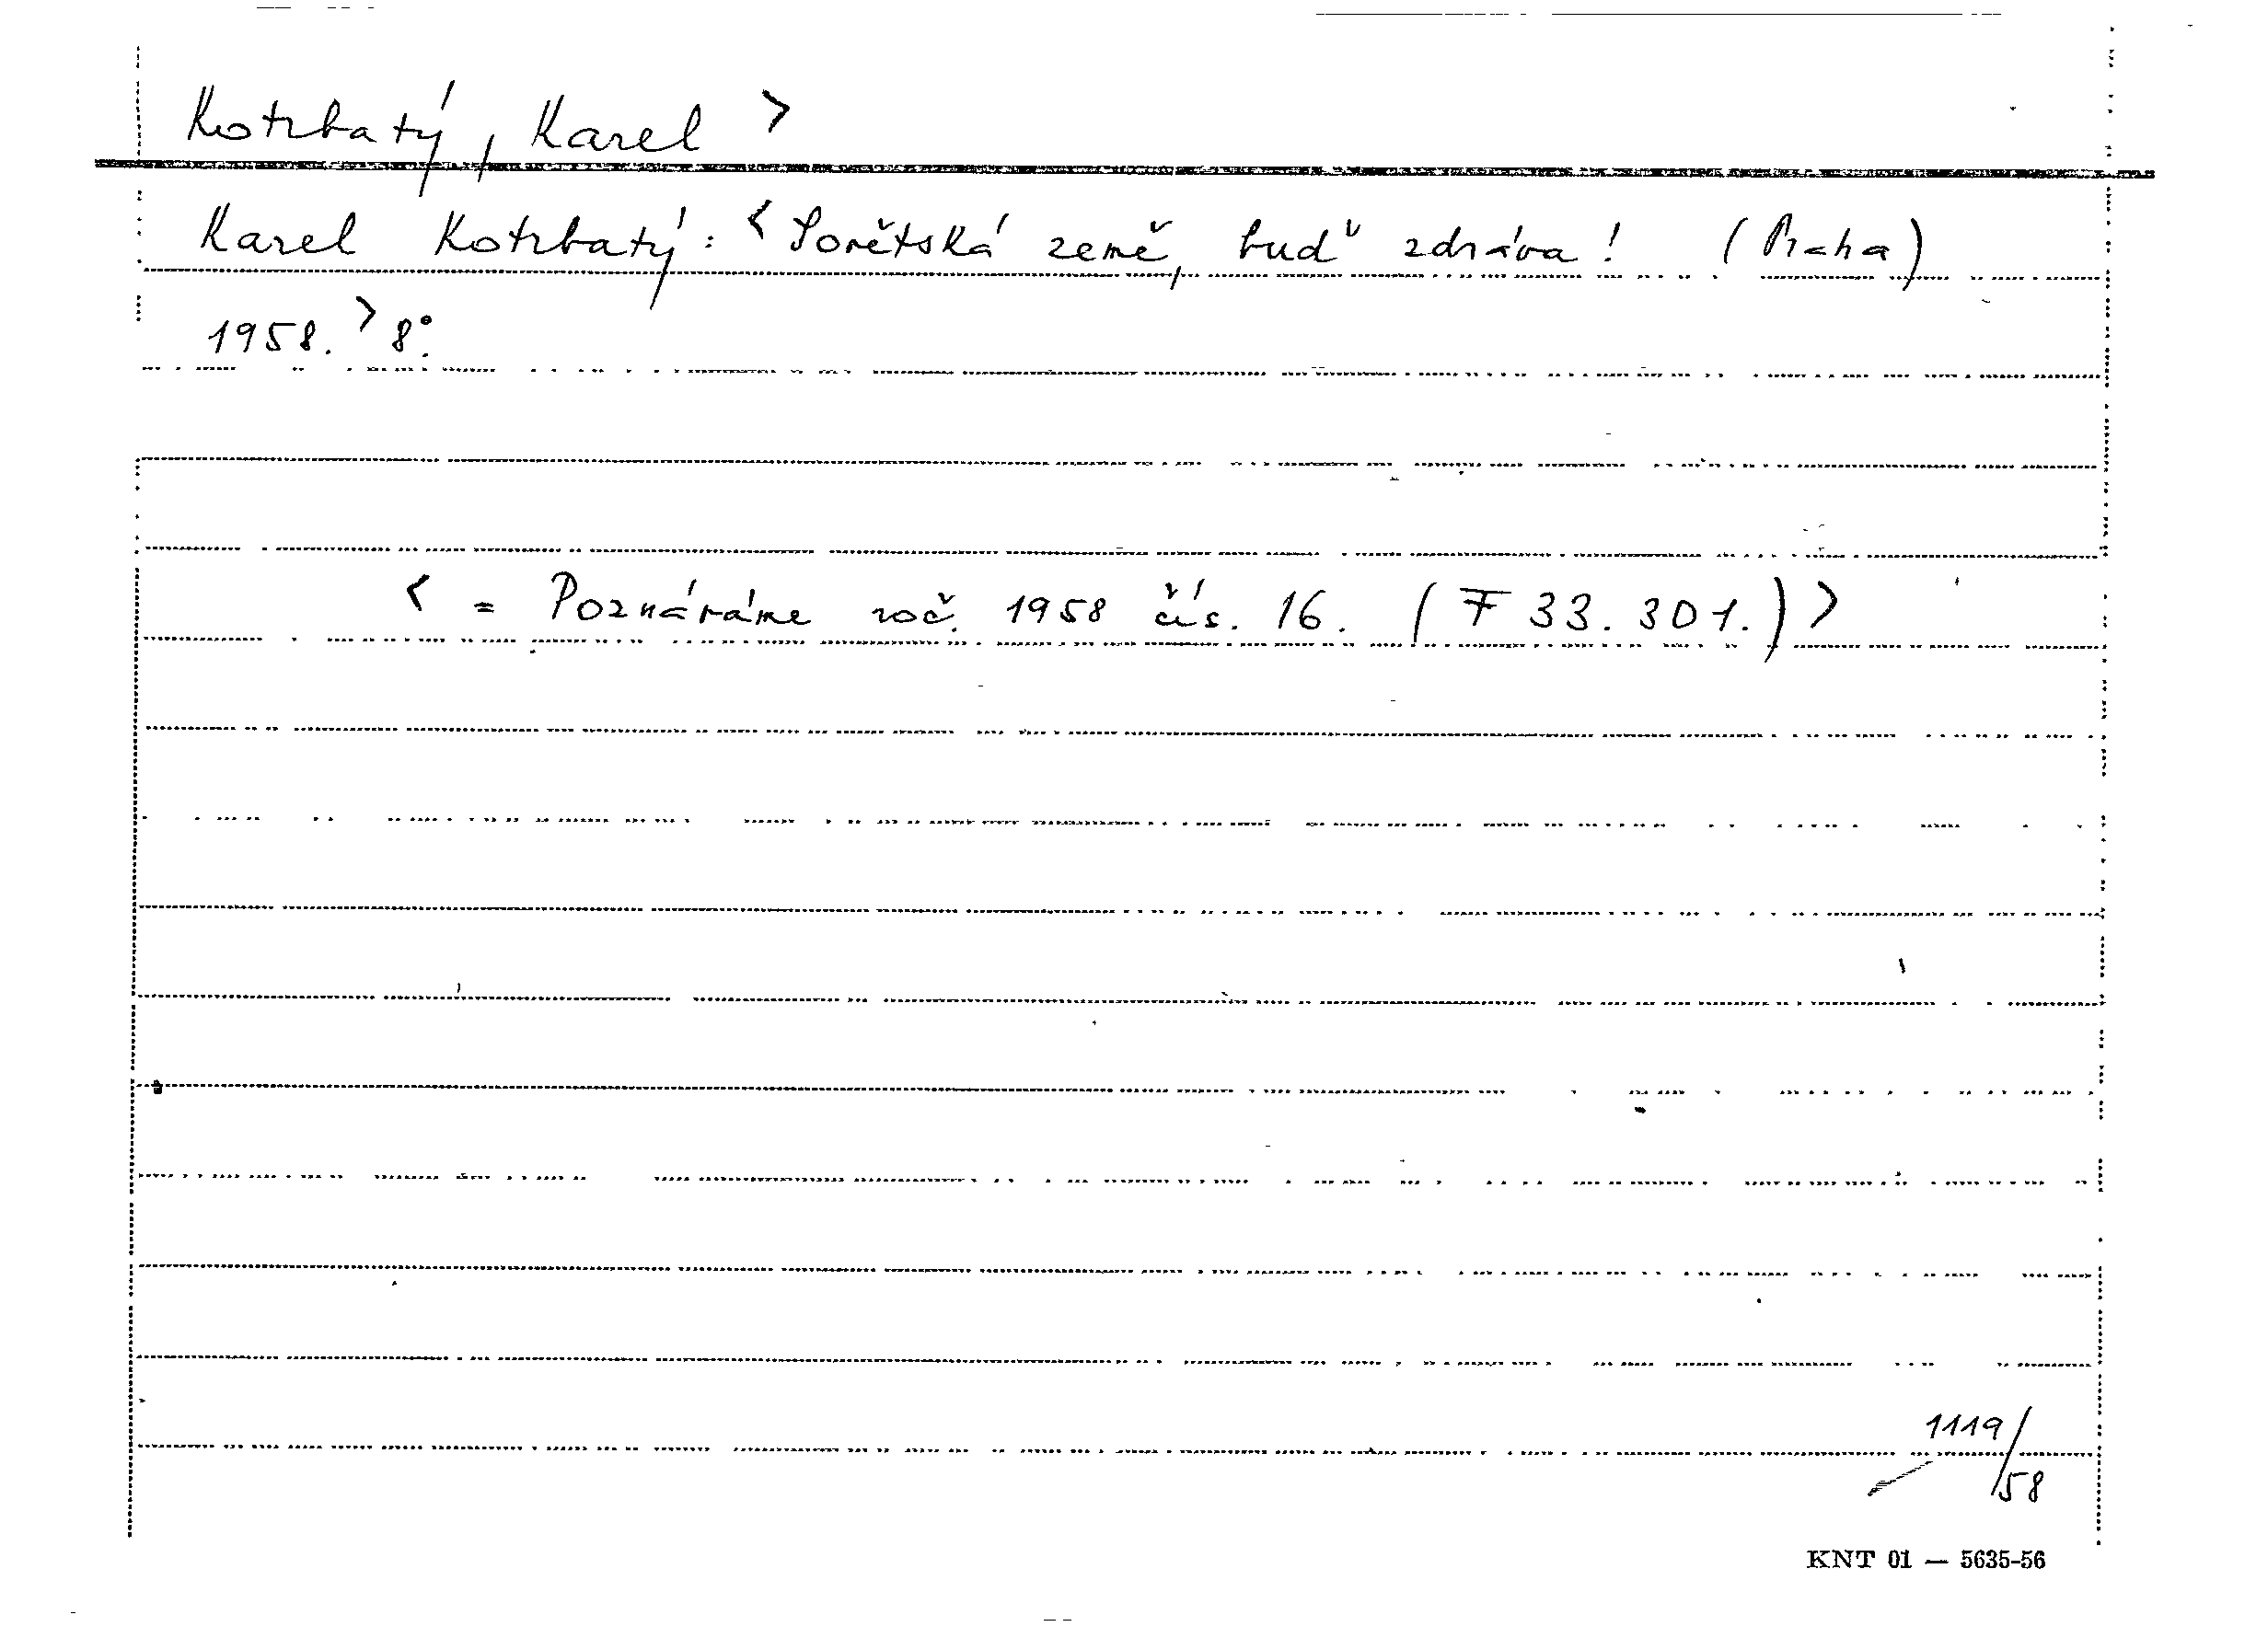 Kotrbatý, Karel >
Karel Kotrbatý: < Sovětská země, buď zdráva! (Praha)
1958. > 8°.
< = Poznáváme roč. 1958 čís. 16. (F 33.301.) >
1119/
58
KNT 01 — 5635-56